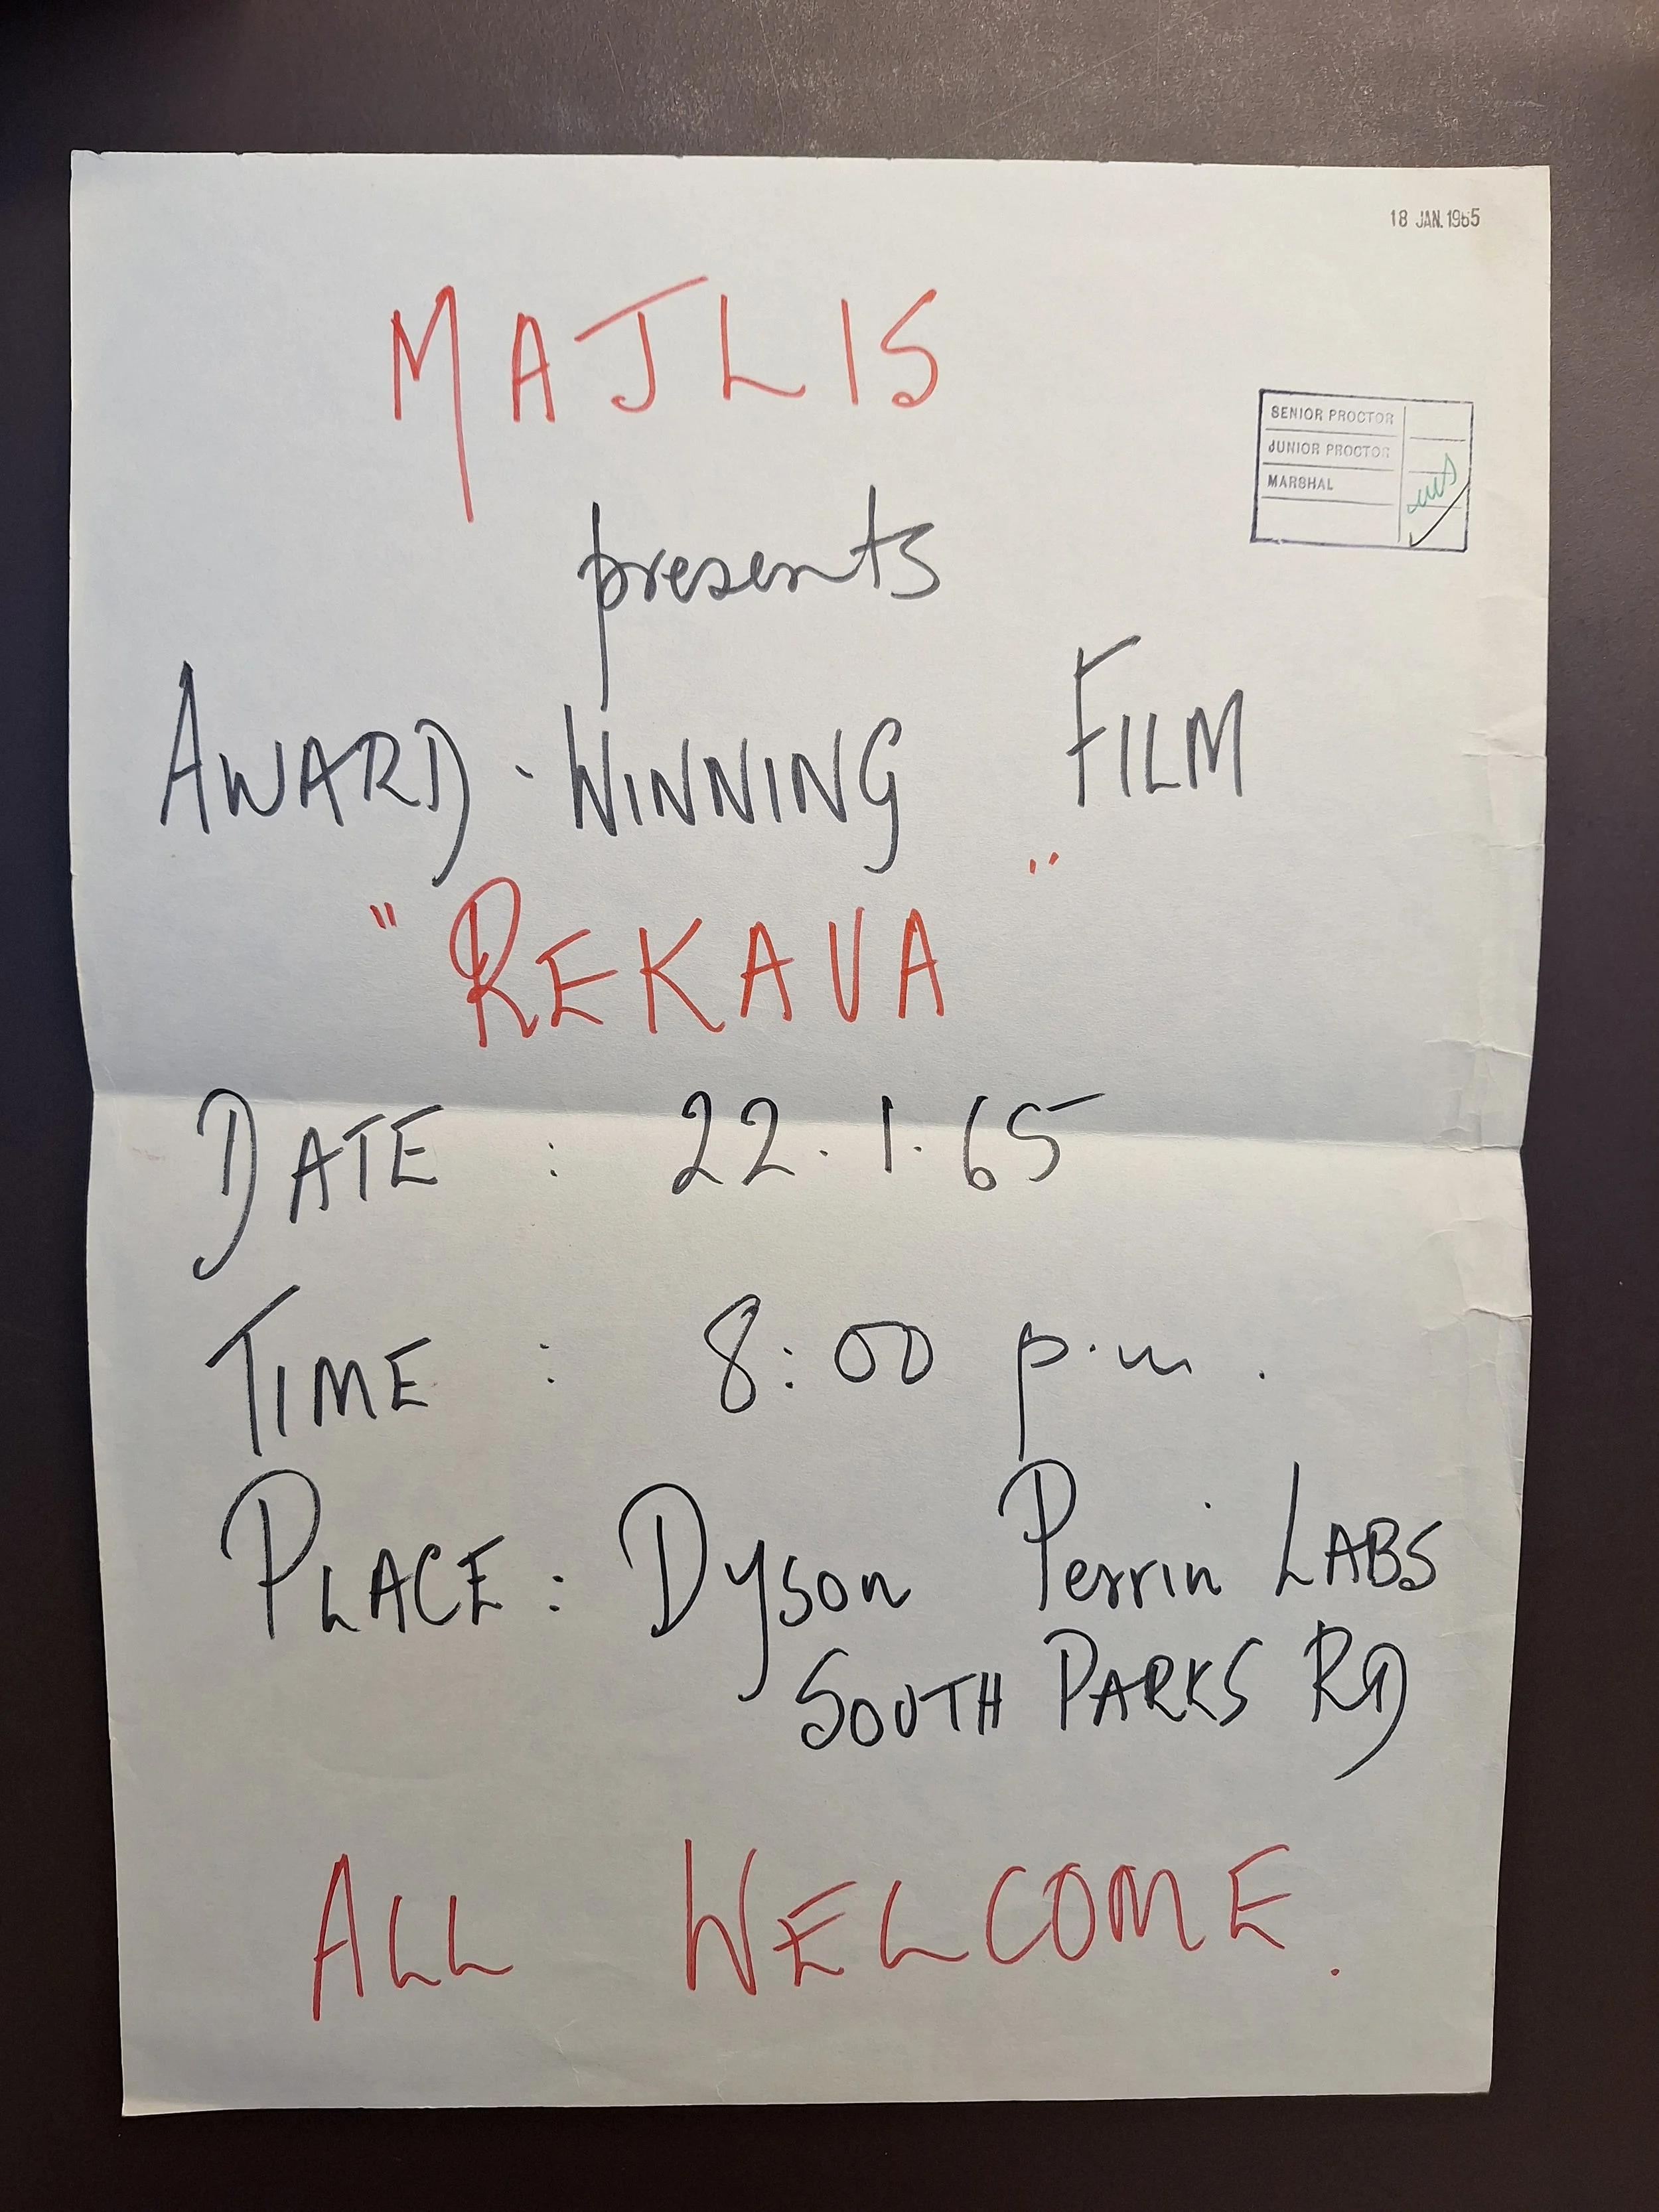 18 JAN. 1965
MAJLIS
SENIOR PROCTOR
JUNIOR PROCTOR
MARSHAL
presents
AWARD-WINNING FILM
"REKAVA"
DATE : 22.1.65
TIME : 8:00 p.m.
PLACE : Dyson Perrin LABS
SOUTH PARKS RD
ALL WELCOME.